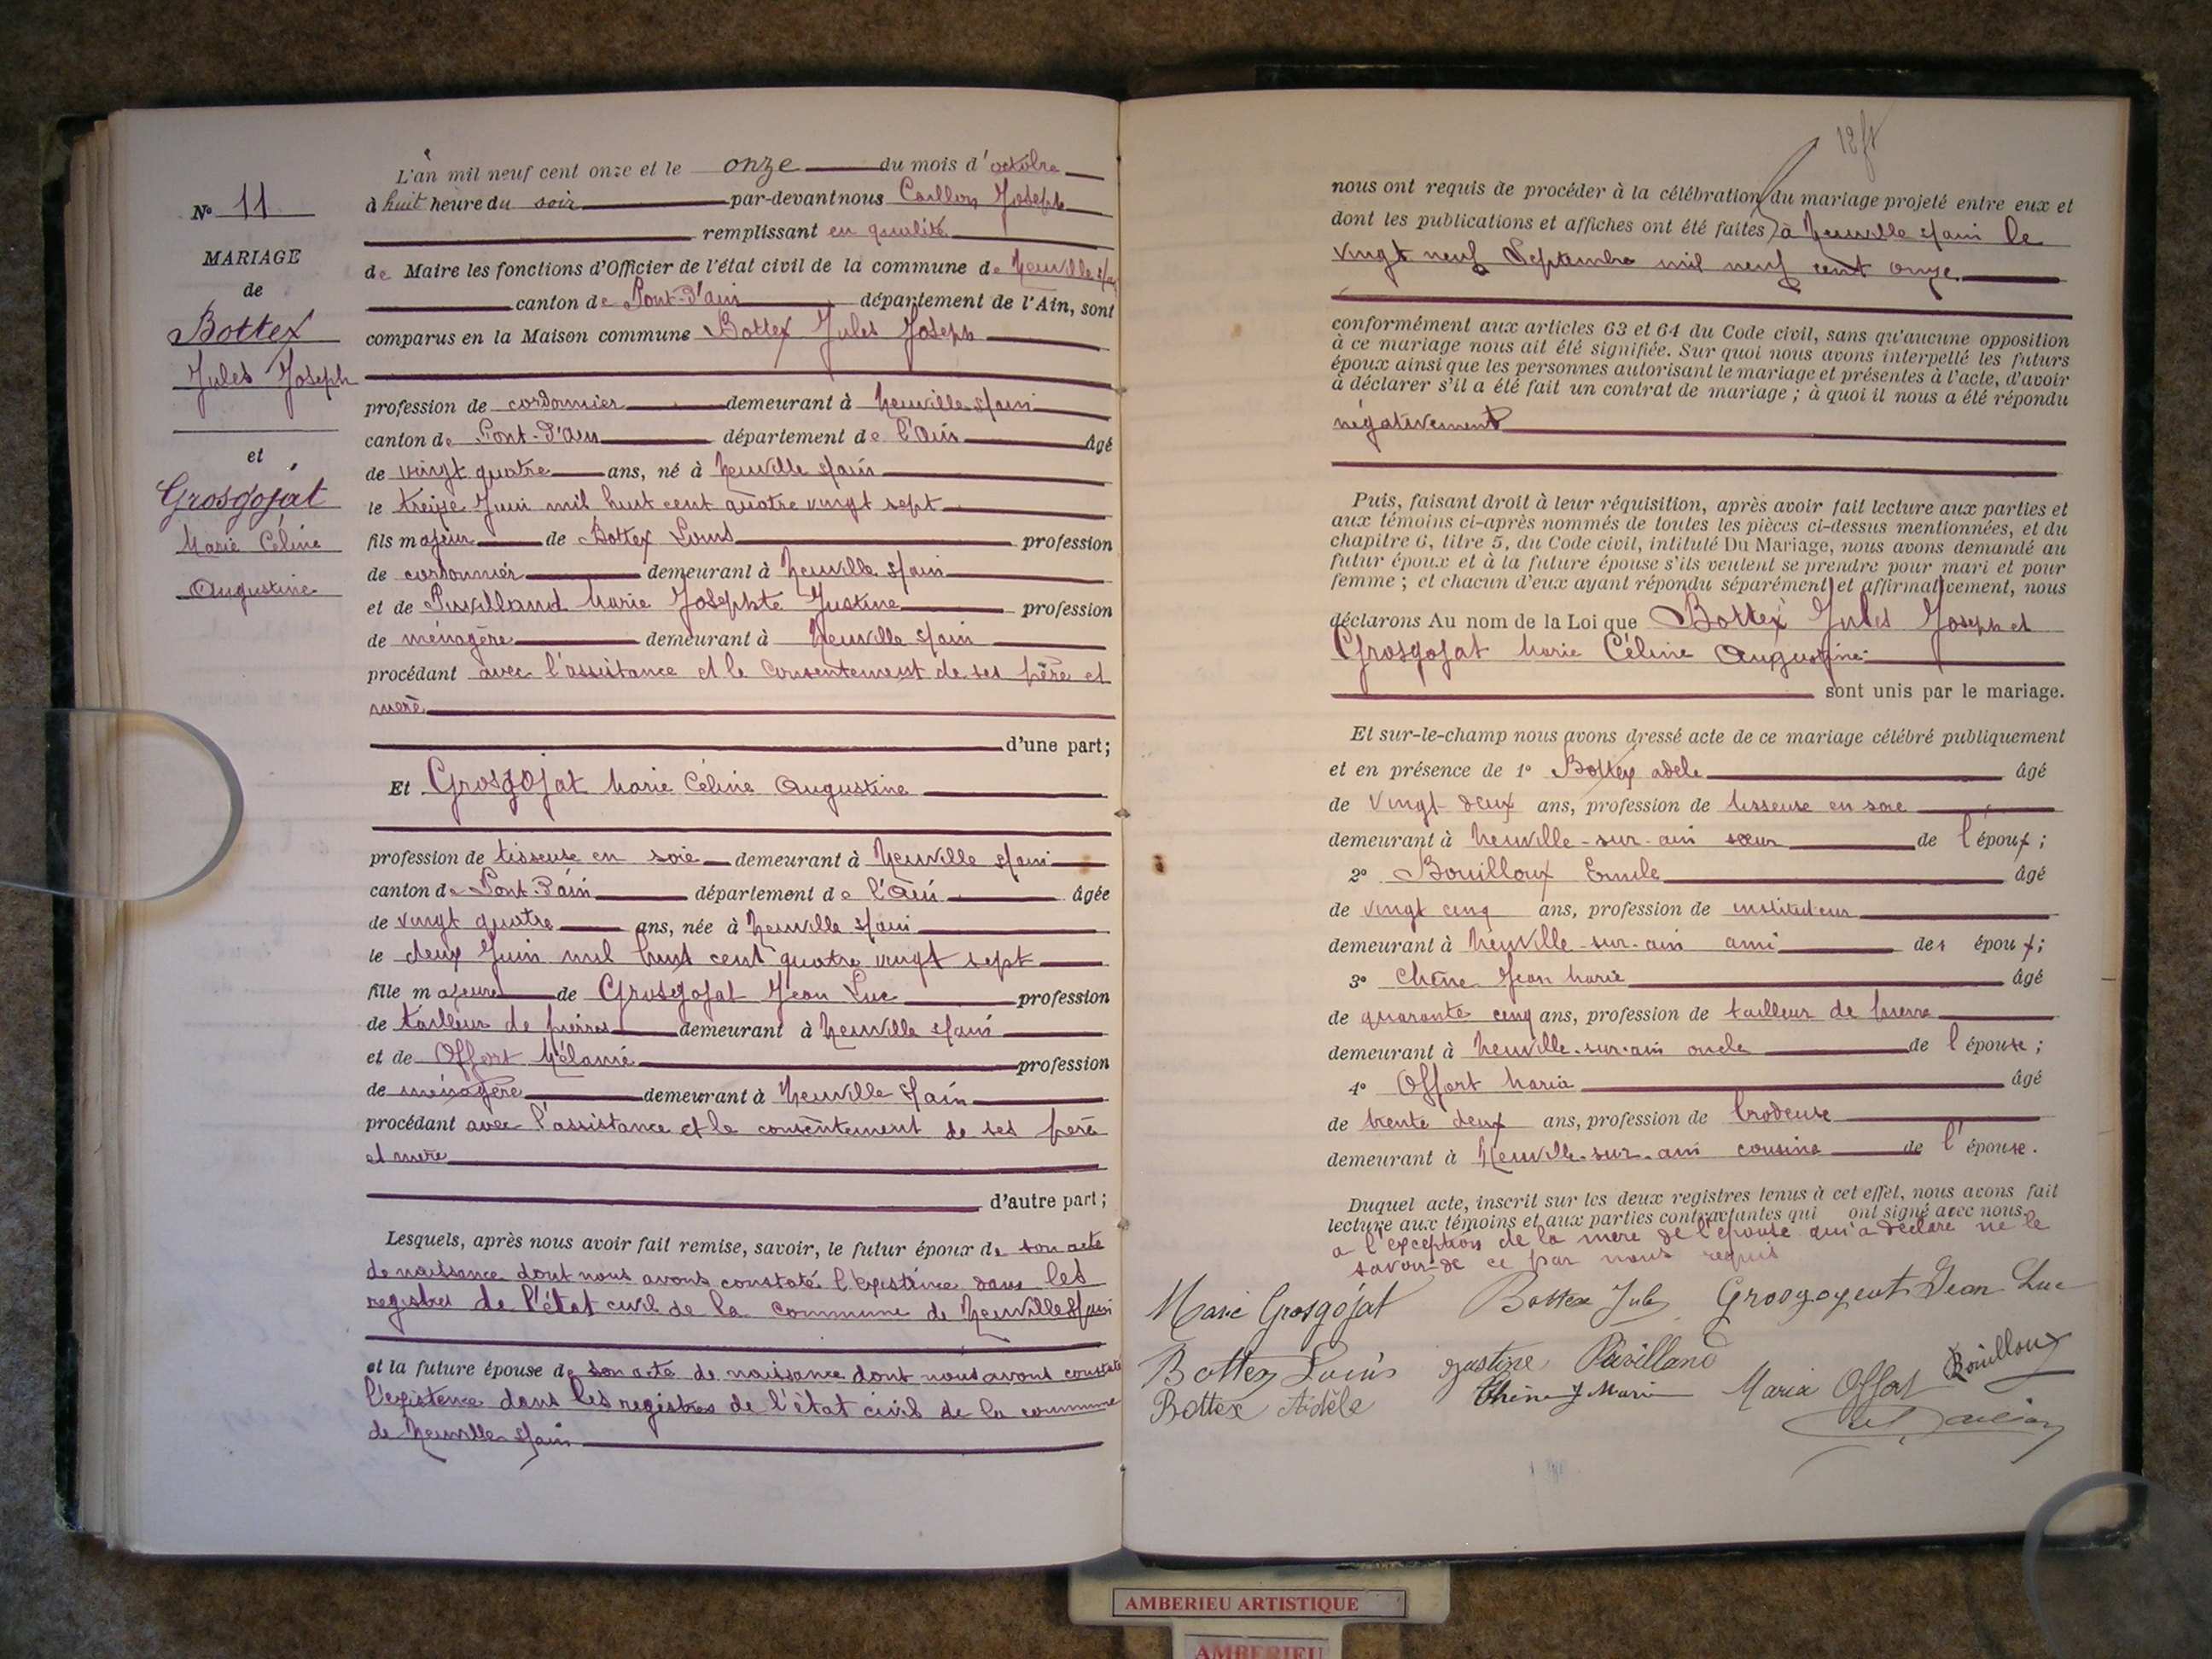 N° 11
MARIAGE
de
Bottex
Jules Joseph
et
Grosgojat
Marie Céline
Augustine
L'an mil neuf cent onze et le onze du mois d'octobre
à huit heure du soir par-devant nous Joseph
remplissant en qualité
de Maire les fonctions d'Officier de l'état civil de la commune de Neuville s/ain
canton de Pont-d'ain département de l'Ain, sont
comparus en la Maison commune Bottex Jules Joseph
profession de cordonnier demeurant à Neuville s/ain
canton de Pont-d'ain département de l'Ain âgé
de vingt quatre ans, né à Neuville s/ain
le treize Juin mil huit cent quatre vingt sept
fils majeur de Bottex Louis profession
de cordonnier demeurant à Neuville s/ain
et de Puvilland Marie Josephte Justine profession
de ménagère demeurant à Neuville s/ain
procédant avec l'assistance et le consentement de ses père et
mère
d'une part;
Et Grosgojat Marie Céline Augustine
profession de tisseuse en soie demeurant à Neuville s/ain
canton de Pont-d'ain département de l'Ain âgée
de vingt quatre ans, née à Neuville s/ain
le deux Juin mil huit cent quatre vingt sept
fille majeure de Grosgojat Jean Luc profession
de tailleur de pierres demeurant à Neuville s/ain
et de Offort Mélanie profession
de ménagère demeurant à Neuville s/ain
procédant avec l'assistance et le consentement de ses père
et mère
d'autre part;
Lesquels, après nous avoir fait remise, savoir, le futur époux de son acte
de naissance dont nous avons constaté l'existence dans les
registres de l'état civil de la commune de Neuville s/ain
et la future épouse de son acte de naissance dont nous avons constaté
l'existence dans les registres de l'état civil de la commune
de Neuville s/ain
nous ont requis de procéder à la célébration du mariage projeté entre eux et
dont les publications et affiches ont été faites à Neuville s/ain le
vingt neuf Septembre mil neuf cent onze
conformément aux articles 63 et 64 du Code civil, sans qu'aucune opposition
à ce mariage nous ait été signifiée. Sur quoi nous avons interpellé les futurs
époux ainsi que les personnes autorisant le mariage et présentes à l'acte, d'avoir
à déclarer s'il a été fait un contrat de mariage ; à quoi il nous a été répondu
négativement
Puis, faisant droit à leur réquisition, après avoir fait lecture aux parties et
aux témoins ci-après nommés de toutes les pièces ci-dessus mentionnées, et du
chapitre 6, titre 5, du Code civil, intitulé Du Mariage, nous avons demandé au
futur époux et à la future épouse s'ils veulent se prendre pour mari et pour
femme ; et chacun d'eux ayant répondu séparément et affirmativement, nous
déclarons Au nom de la Loi que Bottex Jules Joseph et
Grosgojat Marie Céline Augustine
sont unis par le mariage.
Et sur-le-champ nous avons dressé acte de ce mariage célébré publiquement
et en présence de 1° Bottex adele âgé
de vingt deux ans, profession de tisseuse en soie
demeurant à Neuville-sur-ain sœur de l'époux ;
2° Bouilloux Emile âgé
de vingt cinq ans, profession de instituteur
demeurant à Neuville-sur-ain ami des époux;
3° Chêne Jean Marie âgé
de quarante cinq ans, profession de tailleur de pierre
demeurant à Neuville-sur-ain oncle de l'épouse ;
4° Offort Maria âgé
de trente deux ans, profession de brodeuse
demeurant à Neuville-sur-ain cousine de l'épouse.
Duquel acte, inscrit sur les deux registres tenus à cet effet, nous avons fait
lecture aux témoins et aux parties contractantes qui ont signé avec nous
a l'exception de la mère de l'épouse qui a déclaré ne le
savoir de ce par nous requis
Marie Grosgojat Bottex Jules Jean Luc
Bottex Louis Justine Puvilland Bouilloux
Bottex Adèle Chêne J Marie Maria Offort
AMBERIEU ARTISTIQUE
AMBERIEU